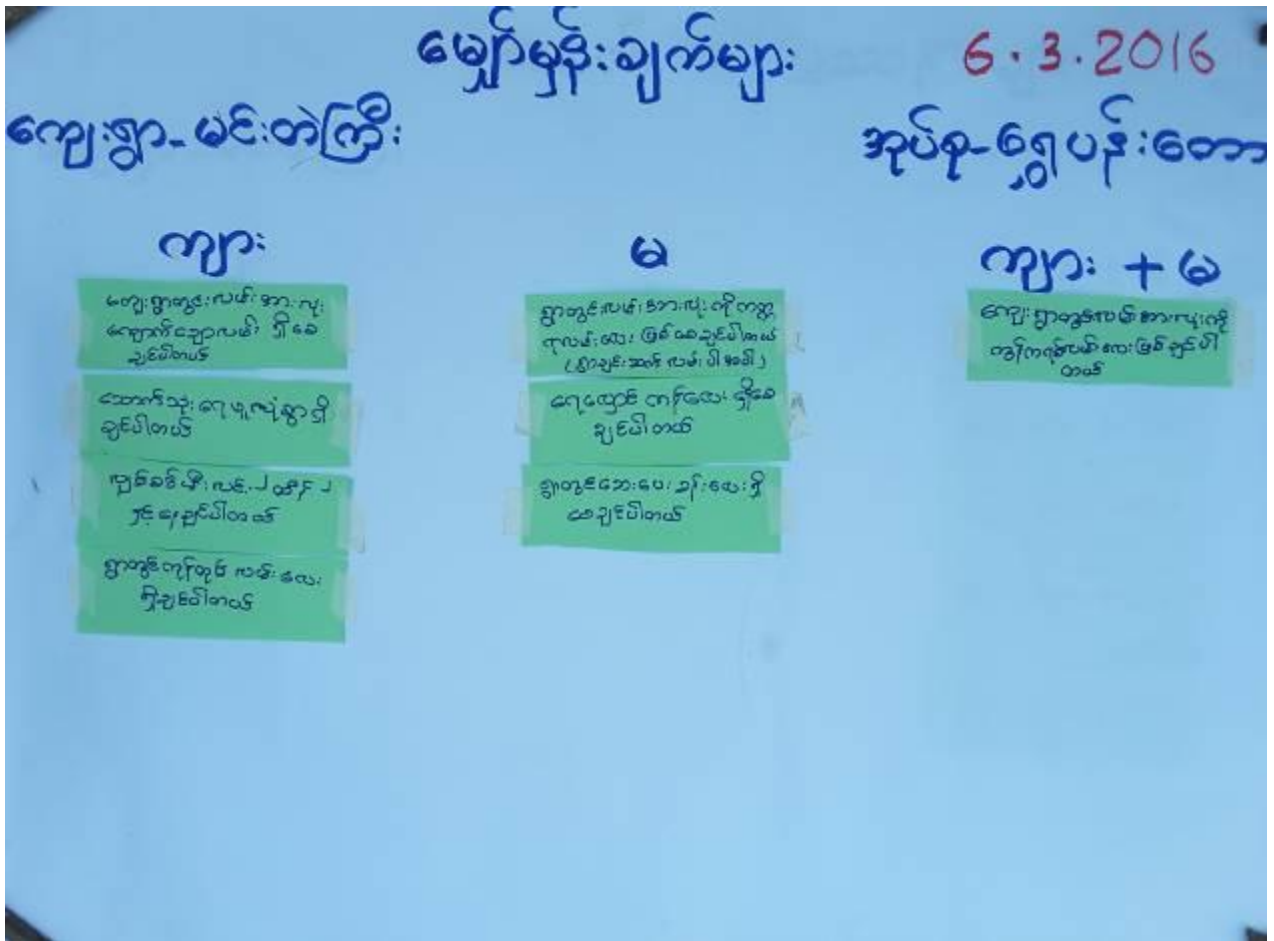 မျှော်မှန်းချက်များ
6.3.2016
ကျေးရွာ-မင်းတဲကြီး
အုပ်စု-ရွှေပန်းတော
ကျား
ကျေးရွာတွင်းလမ်းအားလုံး
ကျောက်ချောလမ်း ရှိစေ
ချင်ပါတယ်
သောက်သုံးရေဖူလုံစွာရှိ
ချင်ပါတယ်
လျှပ်စစ်မီးလင်း
နေချင်ပါတယ်
ရွာတွင်ကုန်တင် လမ်းလေး
ရှိချင်ပါတယ်
မ
ရွာတွင်းလမ်းအားလုံးကိုကတ္တ
ရာလမ်းလေး ဖြစ်စေချင်ပါတယ်
(ရွာချင်းဆက် လမ်းပါအပါ)
ရေလှောင်ကန်လေး ရှိစေ
ချင်ပါတယ်
ရွာတွင်ဆေးပေးခန်းလေးရှိ
စေချင်ပါတယ်
ကျား + မ
ကျေးရွာတွင်းလမ်းအားလုံးကို
ကွန်ကရစ်လမ်းလေးဖြစ်ချင်ပါ
တယ်